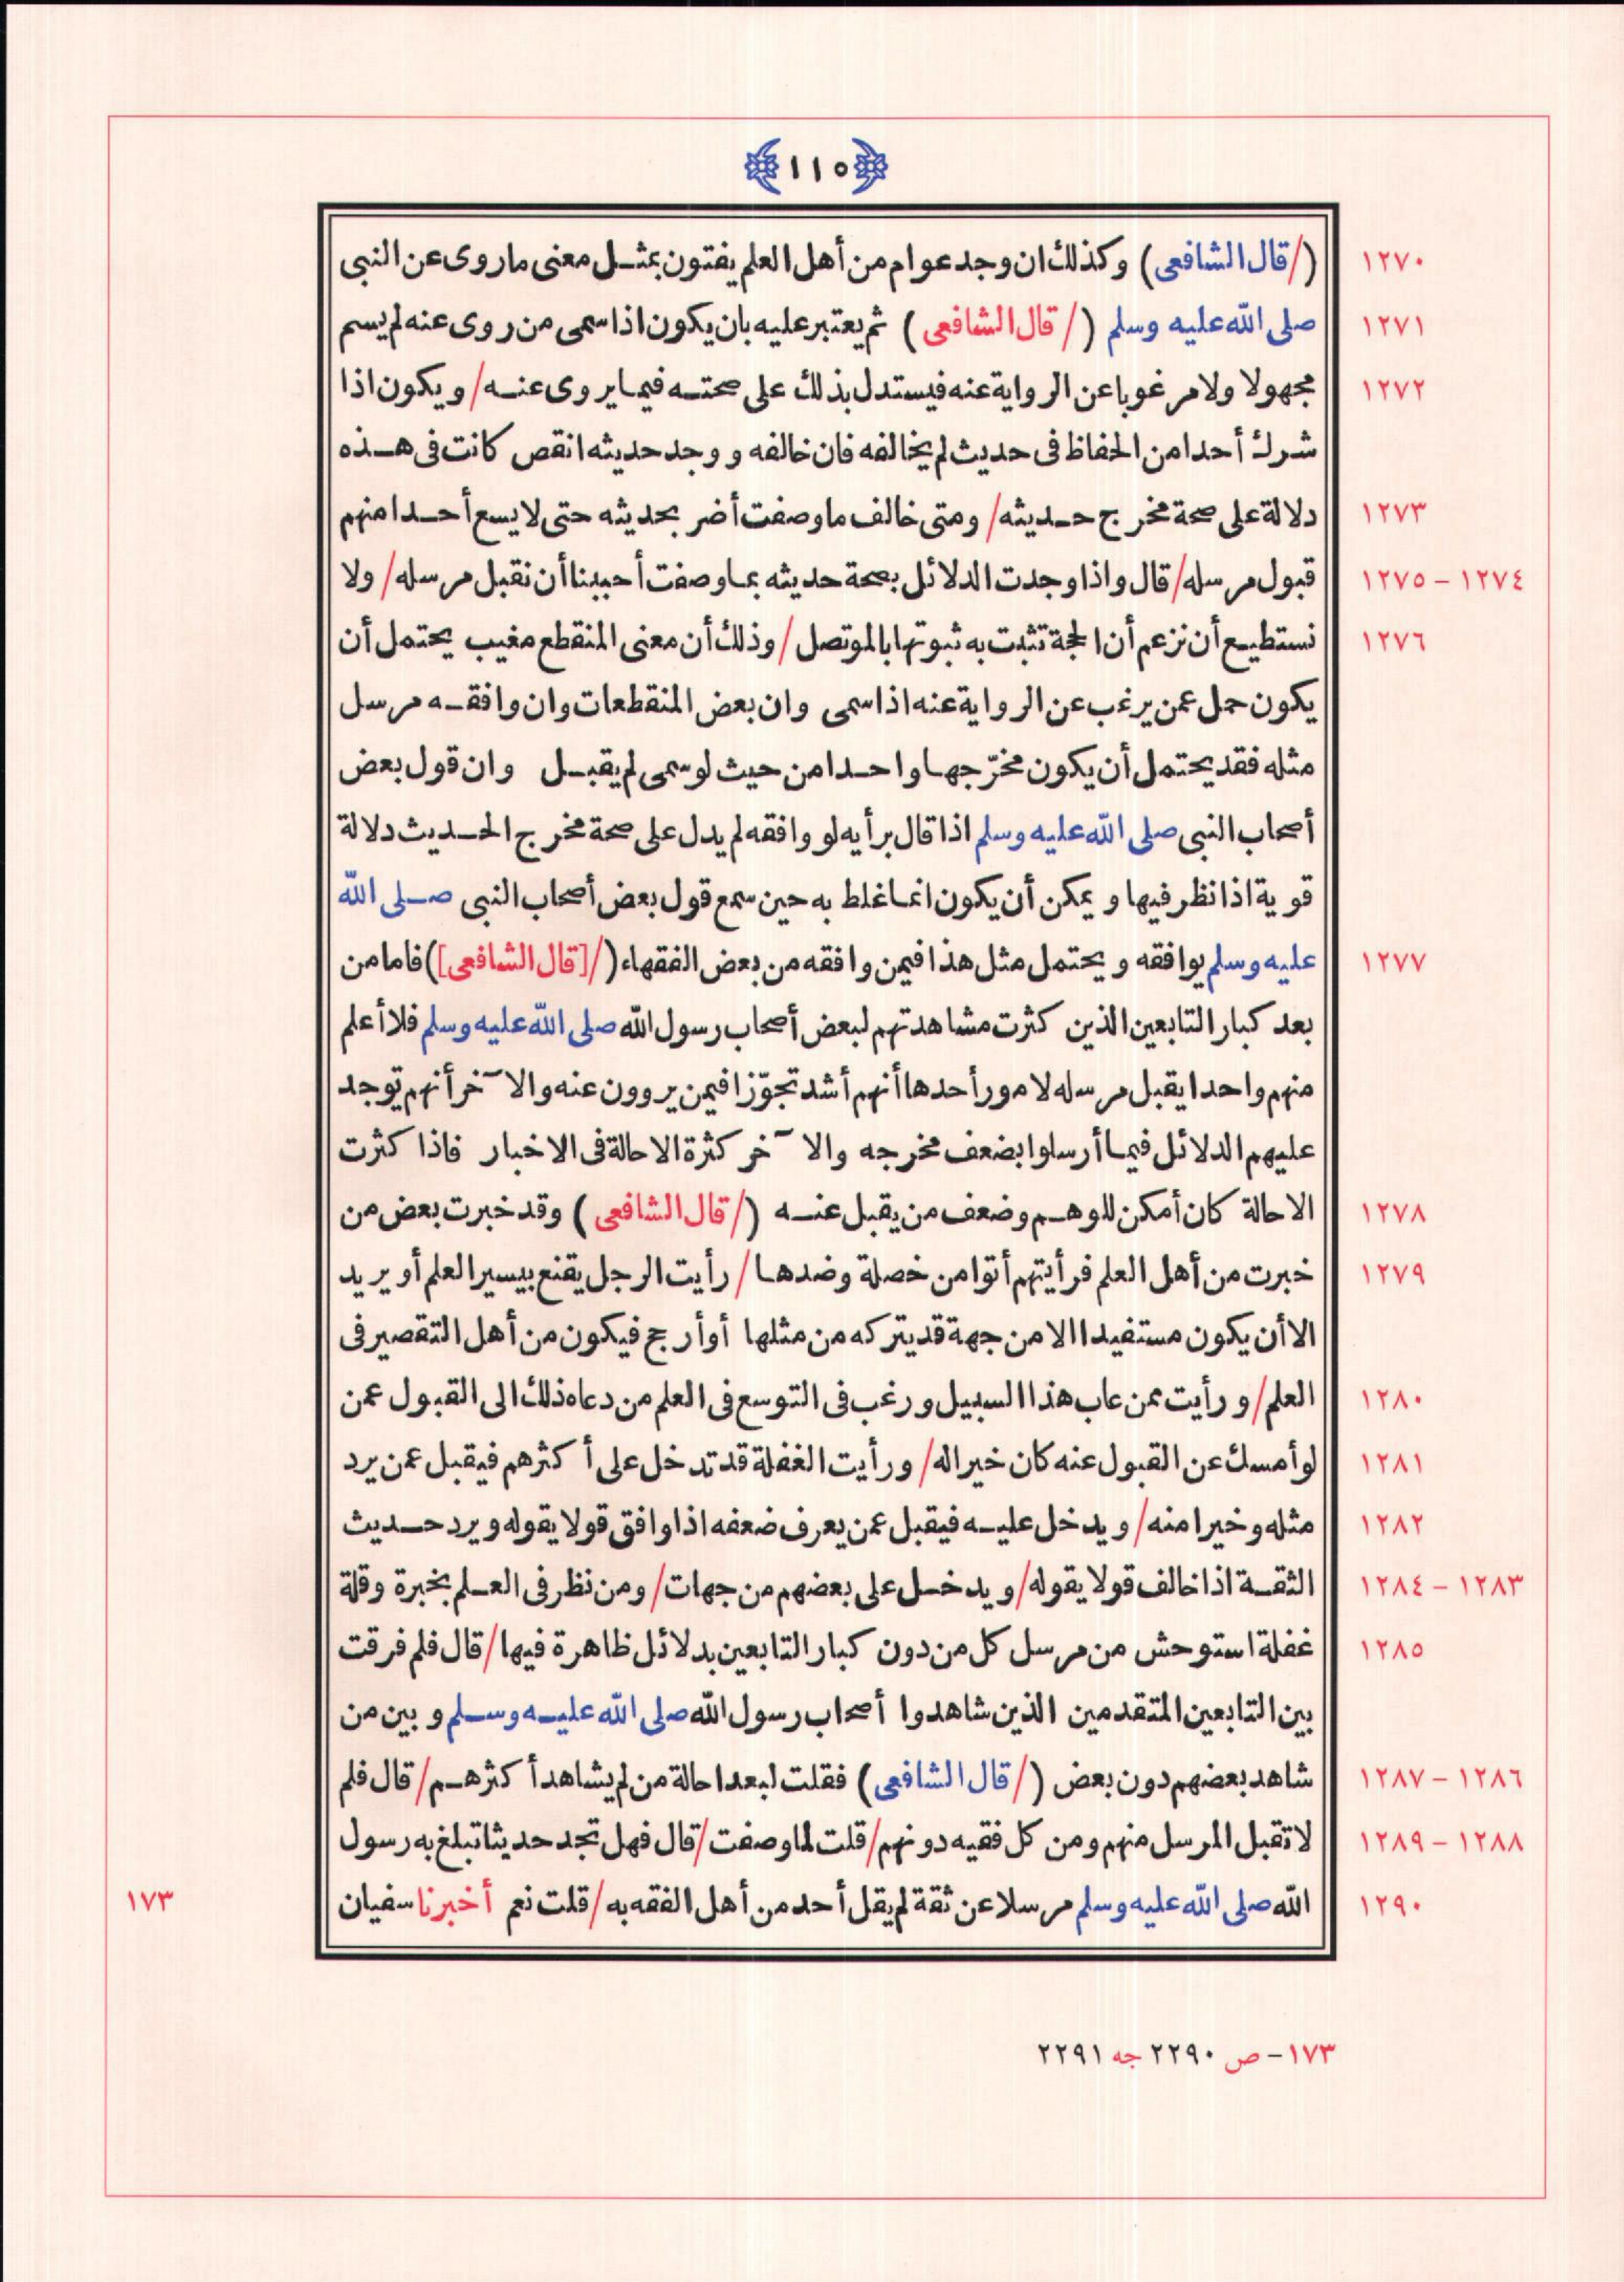 ١١٥
١٢٧٠ (/قال الشافعى) وكذلك ان وجد عوام من أهل العلم يفتون بمثل معنى ما روى عن النبى
١٢٧١ صلى الله عليه وسلم (/قال الشافعى) ثم يعتبر عليه بان يكون اذا سمى من روى عنه لم يسم
١٢٧٢ مجهولا ولا مرغوبا عن الرواية عنه فيستدل بذلك على صحته فيما يروى عنه/ ويكون اذا
شرك أحدا من الحفاظ فى حديث لم يخالفه فان خالفه ووجد حديثه انقص كانت فى هذه
١٢٧٣ دلالة على صحة مخرج حديثه/ ومتى خالف ما وصفت أضر بحديثه حتى لا يسع أحدا منهم
١٢٧٤ – ١٢٧٥ قبول مرسله/ قال واذا وجدت الدلائل بصحة حديثه بما وصفت أحببنا أن نقبل مرسله/ ولا
١٢٧٦ نستطيع أن نزعم أن الحجة تثبت به ثبوتها بالموتصل/ وذلك أن معنى المنقطع مغيب يحتمل أن
يكون حمل عمن يرغب عن الرواية عنه اذا سمى وان بعض المنقطعات وان وافقه مرسل
مثله فقد يحتمل أن يكون مخرّجها واحدا من حيث لو سمى لم يقبل وان قول بعض
أصحاب النبى صلى الله عليه وسلم اذا قال برأيه لو وافقه لم يدل على صحة مخرج الحديث دلالة
قوية اذا نظر فيها ويمكن أن يكون انما غلط به حين سمع قول بعض أصحاب النبى صلى الله
١٢٧٧ عليه وسلم يوافقه ويحتمل مثل هذا فيمن وافقه من بعض الفقهاء (/[قال الشافعى]) فاما من
بعد كبار التابعين الذين كثرت مشاهدتهم لبعض أصحاب رسول الله صلى الله عليه وسلم فلا أعلم
منهم واحدا يقبل مرسله لامور أحدها أنهم أشد تجوّزا فيمن يروون عنه والا ٓخر أنهم توجد
عليهم الدلائل فيما أرسلوا بضعف مخرجه والا ٓخر كثرة الاحالة فى الاخبار فاذا كثرت
١٢٧٨ الاحالة كان أمكن للوهم وضعف من يقبل عنه (/قال الشافعى) وقد خبرت بعض من
١٢٧٩ خبرت من أهل العلم فرأيتهم أتوا من خصلة وضدها/ رأيت الرجل يقنع بيسير العلم أو يريد
الا أن يكون مستفيدا الا من جهة قد يتركه من مثلها أو أرجح فيكون من أهل التقصير فى
١٢٨٠ العلم/ ورأيت ممن عاب هذا السبيل ورغب فى التوسع فى العلم من دعاه ذلك الى القبول عمن
١٢٨١ لو أمسك عن القبول عنه كان خيرا له/ ورأيت الغفلة قد تدخل على أكثرهم فيقبل عمن يرد
١٢٨٢ مثله وخيرا منه/ ويدخل عليه فيقبل عمن يعرف ضعفه اذا وافق قولا يقوله ويرد حديث
١٢٨٣ – ١٢٨٤ الثقة اذا خالف قولا يقوله/ ويدخل على بعضهم من جهات/ ومن نظر فى العلم بخبرة وقلة
١٢٨٥ غفلة استوحش من مرسل كل من دون كبار التابعين بدلائل ظاهرة فيها/ قال فلم فرقت
بين التابعين المتقدمين الذين شاهدوا أصحاب رسول الله صلى الله عليه وسلم وبين من
١٢٨٦ – ١٢٨٧ شاهد بعضهم دون بعض (/قال الشافعى) فقلت لبعد احالة من لم يشاهد أكثرهم/ قال فلم
١٢٨٨ – ١٢٨٩ لا تقبل المرسل منهم ومن كل فقيه دونهم/ قلت لما وصفت/ قال فهل تجد حديثا تبلغ به رسول
١٢٩٠ الله صلى الله عليه وسلم مرسلا عن ثقة لم يقل أحد من أهل الفقه به/ قلت نعم أخبرنا سفيان ١٧٣
١٧٣ – ص ٢٢٩٠ جه ٢٢٩١